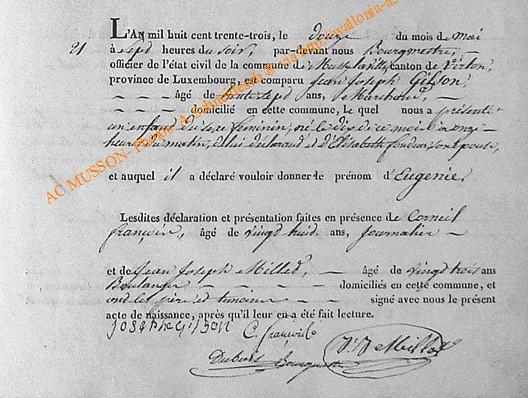 L'An mil huit cent trente-trois, le douze du mois de mai
21 à sept heures du soir, par-devant nous Bourgmestre,
officier de l'état civil de la commune de canton de Virton,
province de Luxembourg, est comparu Jean Joseph Gibson
âgé de trente sept ans, 
domicilié en cette commune, lequel nous a présenté
un enfant du sexe feminin, né le dix de ce mois à onze
heures du matin, de lui déclarant et d'Elisabeth son épouse,
et auquel il a déclaré vouloir donner le prénom d'Eugenie
Lesdites déclaration et présentation faites en présence de Corneil
François, âgé de vingt huit ans, journalier
et de Jean Joseph âgé de vingt trois ans
Boulanger domiciliés en cette commune, et
ont les père et témoins signé avec nous le présent
acte de naissance, après qu'il leur en a été fait lecture.
C. françois
Bourgmestre
AC MUSSON